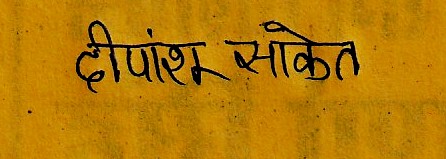 दीपांश साकेत